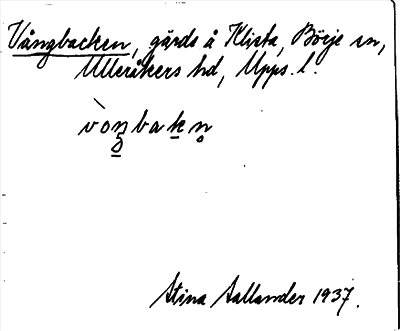 Vångbacken, gärde å Klista, Börje sn,
Ulleråkers hd, Upps. l.
vòŋbakn̥
Stina Sallander 1937.